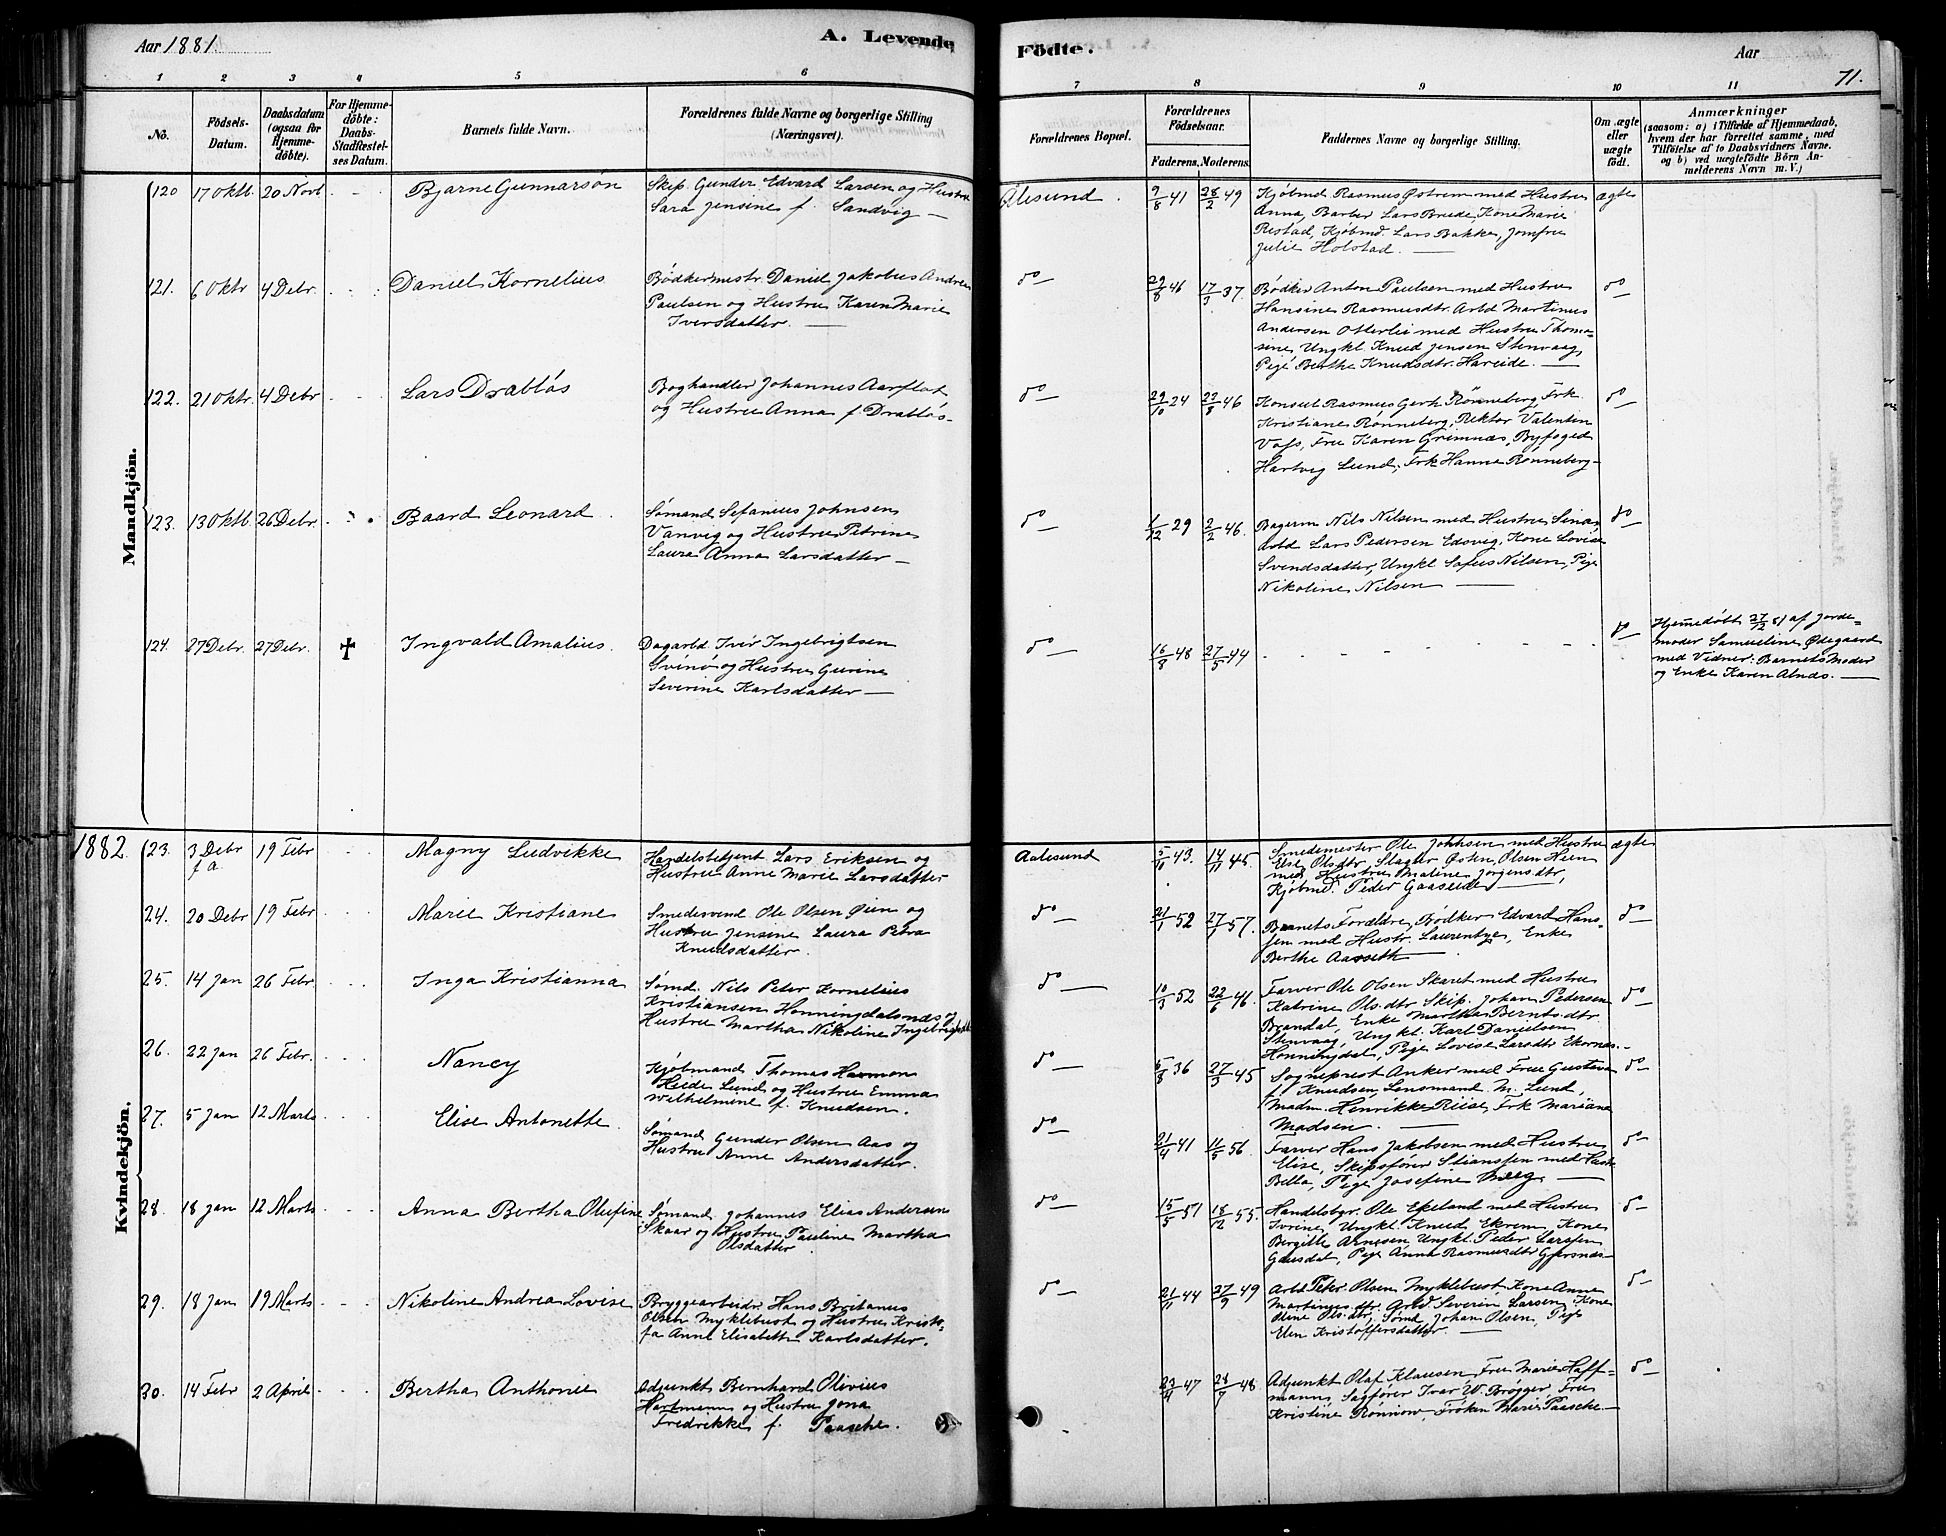 Aar 1881.
A. Levende
Födte.
Aar
71.
1 2 3 4 5 6 7 8 9 10 11
No.
Födsels-
Datum.
Daabsdatum
(ogsaa for
Hjemme-
döbte).
For Hjemme-
döbte:
Daabs-
Stadfæstel-
ses Datum.
Barnets fulde Navn.
Forældrenes fulde Navne og borgerlige Stilling
(Næringsvei).
Forældrenes Bopæl.
Forældrenes
Födselsaar.
Faderens. Moderens.
Faddernes Navne og borgerlige Stilling.
Om ægte
eller
uægte
födt.
Anmærkninger
(saasom: a) i Tilfælde af Hjemmedaab,
hvem der har forrettet samme, med
Tilföielse af to Daabsvidners Navne.
og b) ved uægtefödte Börn An-
melderens Navn m. V.)
Mandkjön.
120 17 Oktb. 20 Novb. - - Bjarne Gunnarsøn
Skip. Gunder Edvard Larsen og Hustru
Sara Jensine f. Sandvig —
Ålesund. 9/8 41 28/2 49
Kjøbmd Rasmus Østrem med Hustru
Anna, Barber Lars Brude, Kone Marie
Restad, Kjøbmd. Lars Bakke, Jomfru
Julie Holstad. —
ægte
121. 6 Oktr 4 Debr. - - Daniel Kornelius
Bødkermestr. Daniel Jakobus Andreas
Paulsen og Hustru Karen Marie
Iversdatter. —
do — 29/8 46 17/3 37.
Bødker Anton Paulsen med Hustru
Hansine Rasmusdtr. Arbd Martinus
Andersen Otterlei med Hustru Thoma-
sine, Ungkl. Knud Jensen Stenvaag,
Pige Berthe Knudsdtr. Hareide. —
do —
122. 21 Oktr. 4 Debr - - Lars Drabløs
Boghandler Johannes Aarflot
og Hustru Anna f. Drabløs -
do — 29/10 24 22/8 46
Konsul Rasmus Gerh. Rønneberg, Frk.
Kristiane Rønneberg, Rektor Valentin
Voss, Fru Karen Grimnæs, Byfoged
Hartvig Lund, Frk Hanna Rønneberg -
do —
123. 13 Oktb. 26 Debr. - - Baard Leonard.
Sømand Sefanius Johnsen
Vanvig og Hustru Petrine
Laura Anna Larsdatter —
do — 1/12 29 2/2 46.
Bagerm Nils Nilsen med Hustru Sina,
Arbd Lars Pedersen Edsvig, Kone Lovise
Svendsdatter, Ungkl Safus Nilsen, Pige
Nikoline Nilsen —
do —
124. 27 Debr. 27 Debr. ✝ Ingvald Amalius.
Dagarbd Iver Ingebrigtsen
Svinø og Hustru Gurine
Severine Karlsdatter —
do — 16/8 48 27/5 44
- - - - - - -
do —
Hjemedøbt 27/12 81 af Jorde-
moder Samueline Ødegaard
med Vidner: Barnets Moder
og Enke Karen Alnæs. —
1882.
Kvindekjön.
23. 3 Debr
f. a. 19 Febr - - Magny Ludvikke
Handelsbetjent Lars Eriksen og
Hustru Anne Marie Larsdatter
Aalesund 5/11 43. 14/11 45.
Smedemester Ole Johnsen med Hustru
Else Olsdtr, Slagter Østen, Olsen Heen
med Hustru Maline Jørgensdtr,
Kjøbmd. Peder Gaaseide —
ægte
24. 20 Debr 19 Febr - - Marie Kristiane
Smedesvend Ole Olsen Øien og
Hustru Jensine Laura Petra
Knudsdatter.
do — 21/1 52 27/1 57.
Barnets Forældre, Bødker Edvard Hans-
sen med Hustr. Laurentze, Enke
Berthe Aarseth —
do —
25. 14 Jan 26 Febr. - - Inga Kristianna
Sømd. Nils Peter Kornelius
Kristiansen Honningdalsnæs og
Hustru Martha Nikoline Ingebrigtsdtr
do — 10/3 52 22/6 46.
Farver Ole Olsen Skaret med Hustru
Katrine Olsdtr Skip. Johan Pedersen
Brandal, Enke Martha Berntsdtr.
Stenvaag, Ungkl. Karl Danielsen
Honningdal, Pige Lovise Larsdtr Ekornæs. -
do —
26. 22 Jan 26 Febr. - - Nancy
Kjøbmand Thomas Harmon
Heide Lund og Hustru Emma
Wilhelmine f. Knudsen.
do — 5/8 36 27/3 45
Sogneprest Anker med Fru Gustava
f. Knudsen, Lensmand M. Lund,
Madm. Henrikke Riise, Frk Mariane
Madsen. —
do —
27. 5 Jan 12 Marts - - Elise Antonette.
Sømand Gunder Olsen Aas og
Hustru Anne Andersdatter.
do — 21/4 41 11/5 56.
Farver Hans Jakobsen med Hustru
Elise, Skipsfører Stianssen med Hustr.
Bella, Pige Josefine —
do —
28. 18 Jan 12 Marts - - Anna Bertha Olufine
Sømand Johannes Elias Andersen
Skaar og Hustru Pauline Martha
Olsdatter.
do — 15/5 51 18/12 55.
Handelsbgr. Ole Ekeland med Hustru
Ivrine, Ungkl. Knud Ekrem, Kone
Bergitte Arnesen Ungkl. Peder Larssen
Gausdal, Pige Anna Rasmusdtr Gjersnæs.
do —
29. 18 Jan 19 Marts - - Nikoline Andrea Lovise
Bryggearbeidr. Hans Britanus
Olsen Myklebust og Hustru Kristo-
fa Anne Elisabeth Karlsdatter.
do — 21/11 44 27/9 49
Arbd Petr. Olsen Myklebust, Kone Anne
Martinusdtr. Arbd. Severin Larsen, Kone
Oline Olsdtr, Sømd Johan Olsen, Pige
Elen Kristoffersdatter. —
do —
30. 14 Febr 2 April - - Bertha Anthonie
Adjunkt Bernhard Olivius
Hartmann og Hustru Jona
Fredrikke f. Paasche.
23/4 47 28/7 48
Adjunkt Olaf Klausen, Fru Marie Hoff-
mann, Sagfører Ivar W. Brøgger, Fru
Kristine Rønnow, Frøken Marie Paasche. —
do —